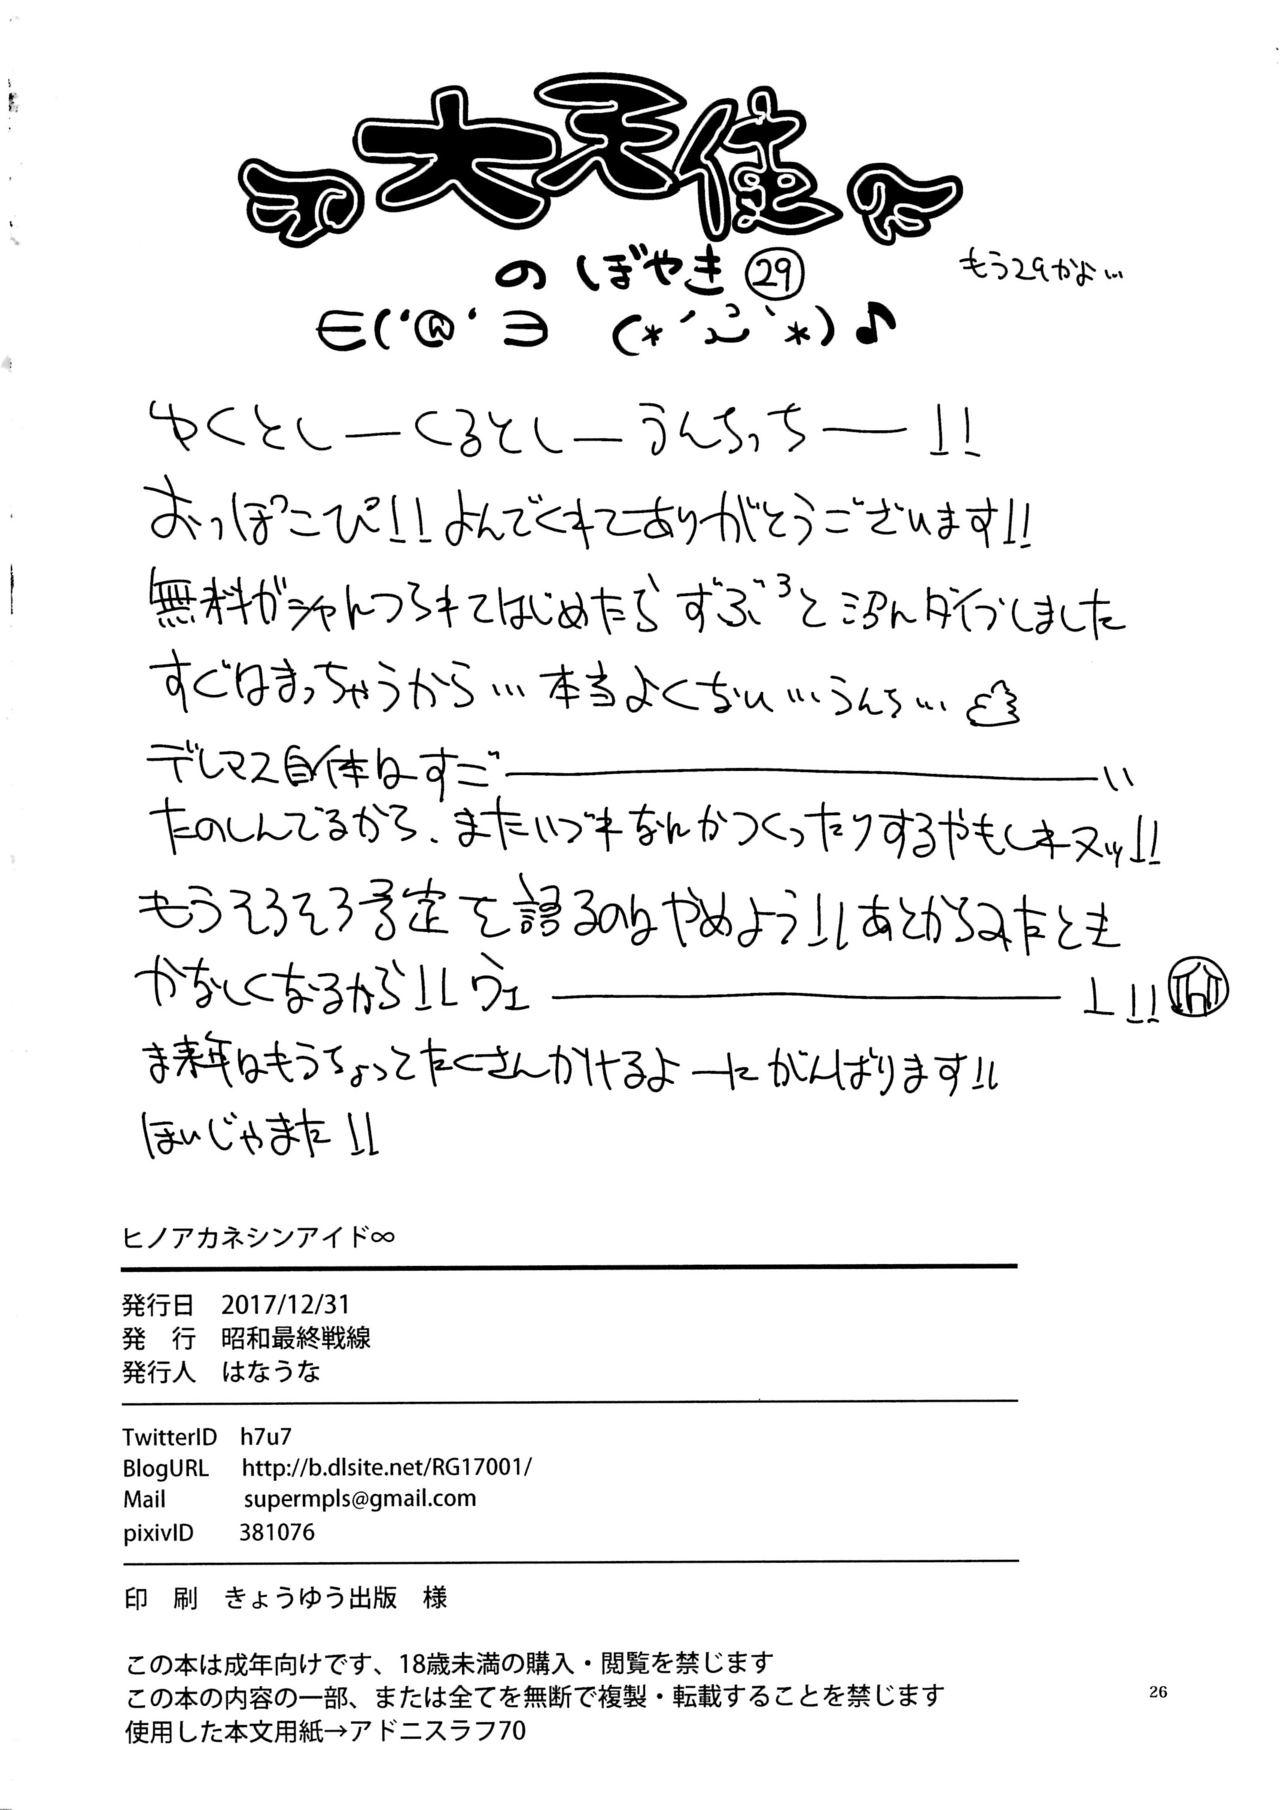 大天使
のぼやき 29
もう29かよ…
∈('@'∋ (*´ω`*)♪
ゆくとしーくるとしーうんちっちー!!
おっぽこぴ!!よんでくれてありがとうございます!!
無料ガシャんつられてはじめたらずぶ³と沼んダイブしました
すぐはまっちゃうから…本当よくない…うんち…
デレマス自体はすごーい
たのしんでるから、またいづれなんかつくったりするやもしれヌッ!!
もうそろそろ予定を語るのはやめよう!!あとからみたとき
かなしくなるから!!ヴェー!!
ま来年はもうちょっとたくさんかけるよーにがんばります!!
ほいじゃまた!!
ヒノアカネシンアイド∞
発行日 2017/12/31
発 行 昭和最終戦線
発行人 はなうな
TwitterID h7u7
BlogURL http://b.dlsite.net/RG17001/
Mail supermpls@gmail.com
pixivID 381076
印 刷 きょうゆう出版 様
この本は成年向けです、18歳未満の購入・閲覧を禁じます
この本の内容の一部、または全てを無断で複製・転載することを禁じます
使用した本文用紙→アドニスラフ70
26